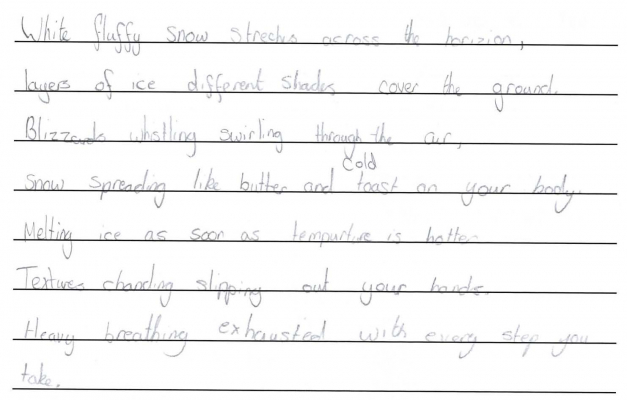 White fluffy snow streches across the horizion,
layers of ice different shades cover the ground.
Blizzards whistling swirling through the air,
Snow spreading like butter and cold toast on your body.
Melting ice as soon as tempurture is hotter
Textures chanding slipping out your hands.
Heavy breathing exhausted with every step you
take.